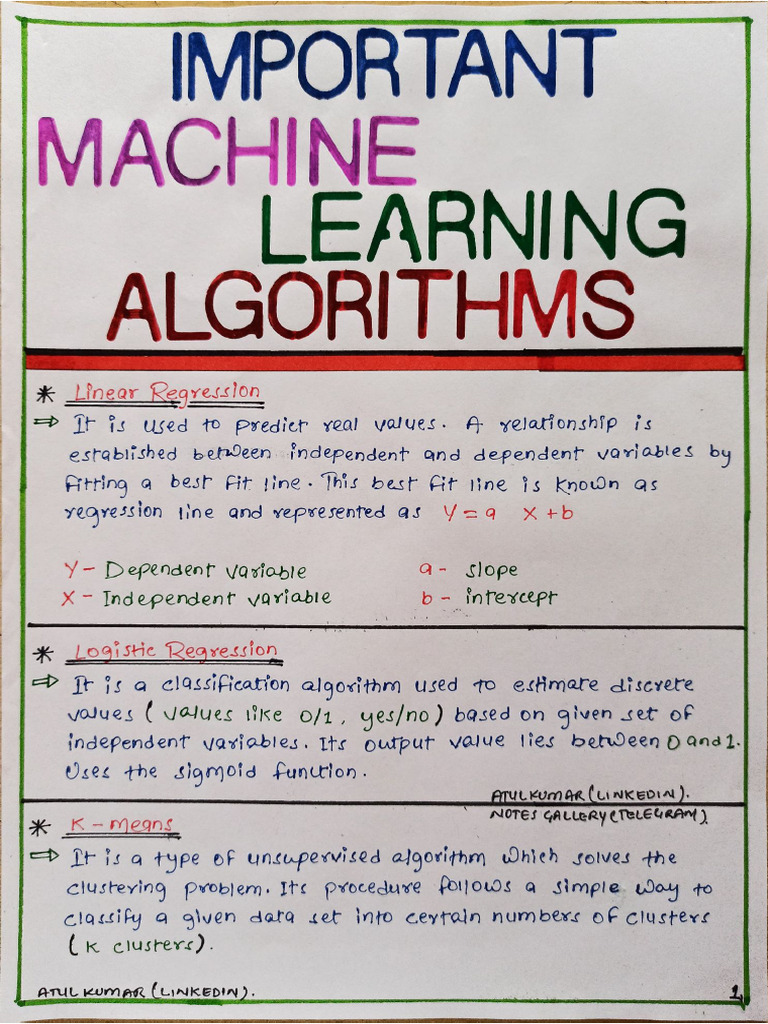 IMPORTANT
MACHINE
LEARNING
ALGORITHMS
* Linear Regression
⇒ It is used to predict real values. A relationship is
established between independent and dependent variables by
fitting a best fit line. This best fit line is known as
regression line and represented as Y = a X + b
Y - Dependent variable a - slope
X - Independent variable b - intercept
* Logistic Regression
⇒ It is a classification algorithm used to estimate discrete
values (values like 0/1, yes/no) based on given set of
independent variables. Its output value lies between 0 and 1.
Uses the sigmoid function.
ATULKUMAR (LINKEDIN).
NOTES GALLERY (TELEGRAM)
* K - Means
⇒ It is a type of unsupervised algorithm which solves the
clustering problem. Its procedure follows a simple way to
classify a given data set into certain numbers of clusters
(K clusters).
ATULKUMAR (LINKEDIN). 1